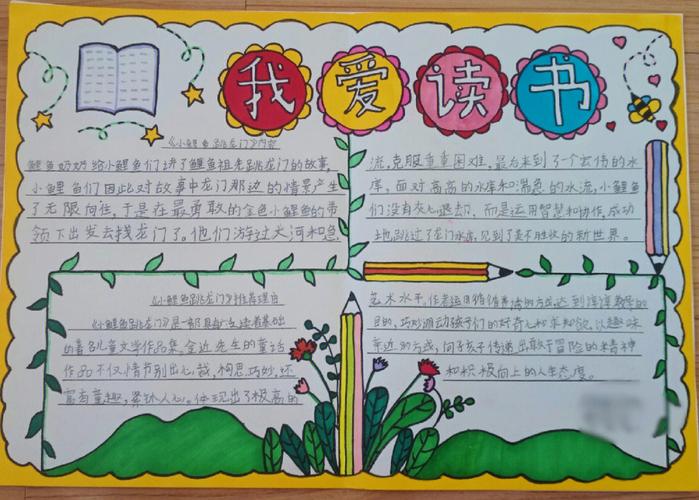 我爱读书
《小鲤鱼跳龙门》内容
鲤鱼奶奶给小鲤鱼们讲了鲤鱼祖先跳龙门的故事,
小鲤鱼们因此对故事中龙门那边的情景产生
了无限向往,于是在最勇敢的金色小鲤鱼的带
领下出发去找龙门了。他们游过大河和急
流,克服重重困难,最后来到了个宏伟的水
库,面对高高的水库和湍急的水流,小鲤鱼
们没有灰心退却,而是运用智慧和协作,成功
地跳过了龙门水库,见到了美不胜收的新世界。
《小鲤鱼跳龙门》推荐理由
《小鲤鱼跳龙门》是一部具有广泛读者基础
的著名儿童文学作品集,金近先生的童话
作品不仅情节别出心裁,构思巧妙,还
富有童趣,紧扣人心。体现出了极高的
艺术水平,作者运用循循善诱的方式,达到谆谆教导的
目的,巧妙激动孩子们的好奇心和求知欲,以趣味
的方式,向孩子传递出敢于冒险的精神
和积极向上的人生态度。